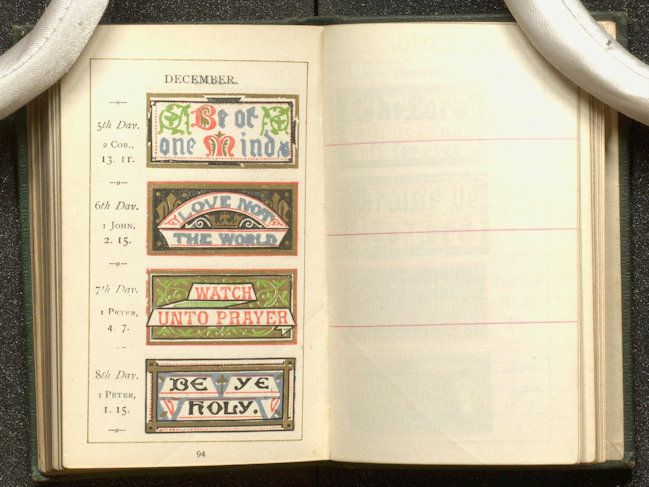 DECEMBER.
5th Day.
2 COR.,
13. 11.
Be of
one Mind
6th Day.
1 JOHN,
2. 15.
LOVE NOT
THE WORLD
7th Day.
1 PETER,
4. 7.
WATCH
UNTO PRAYER
8th Day.
1 PETER,
1. 15.
BE YE
HOLY.
94